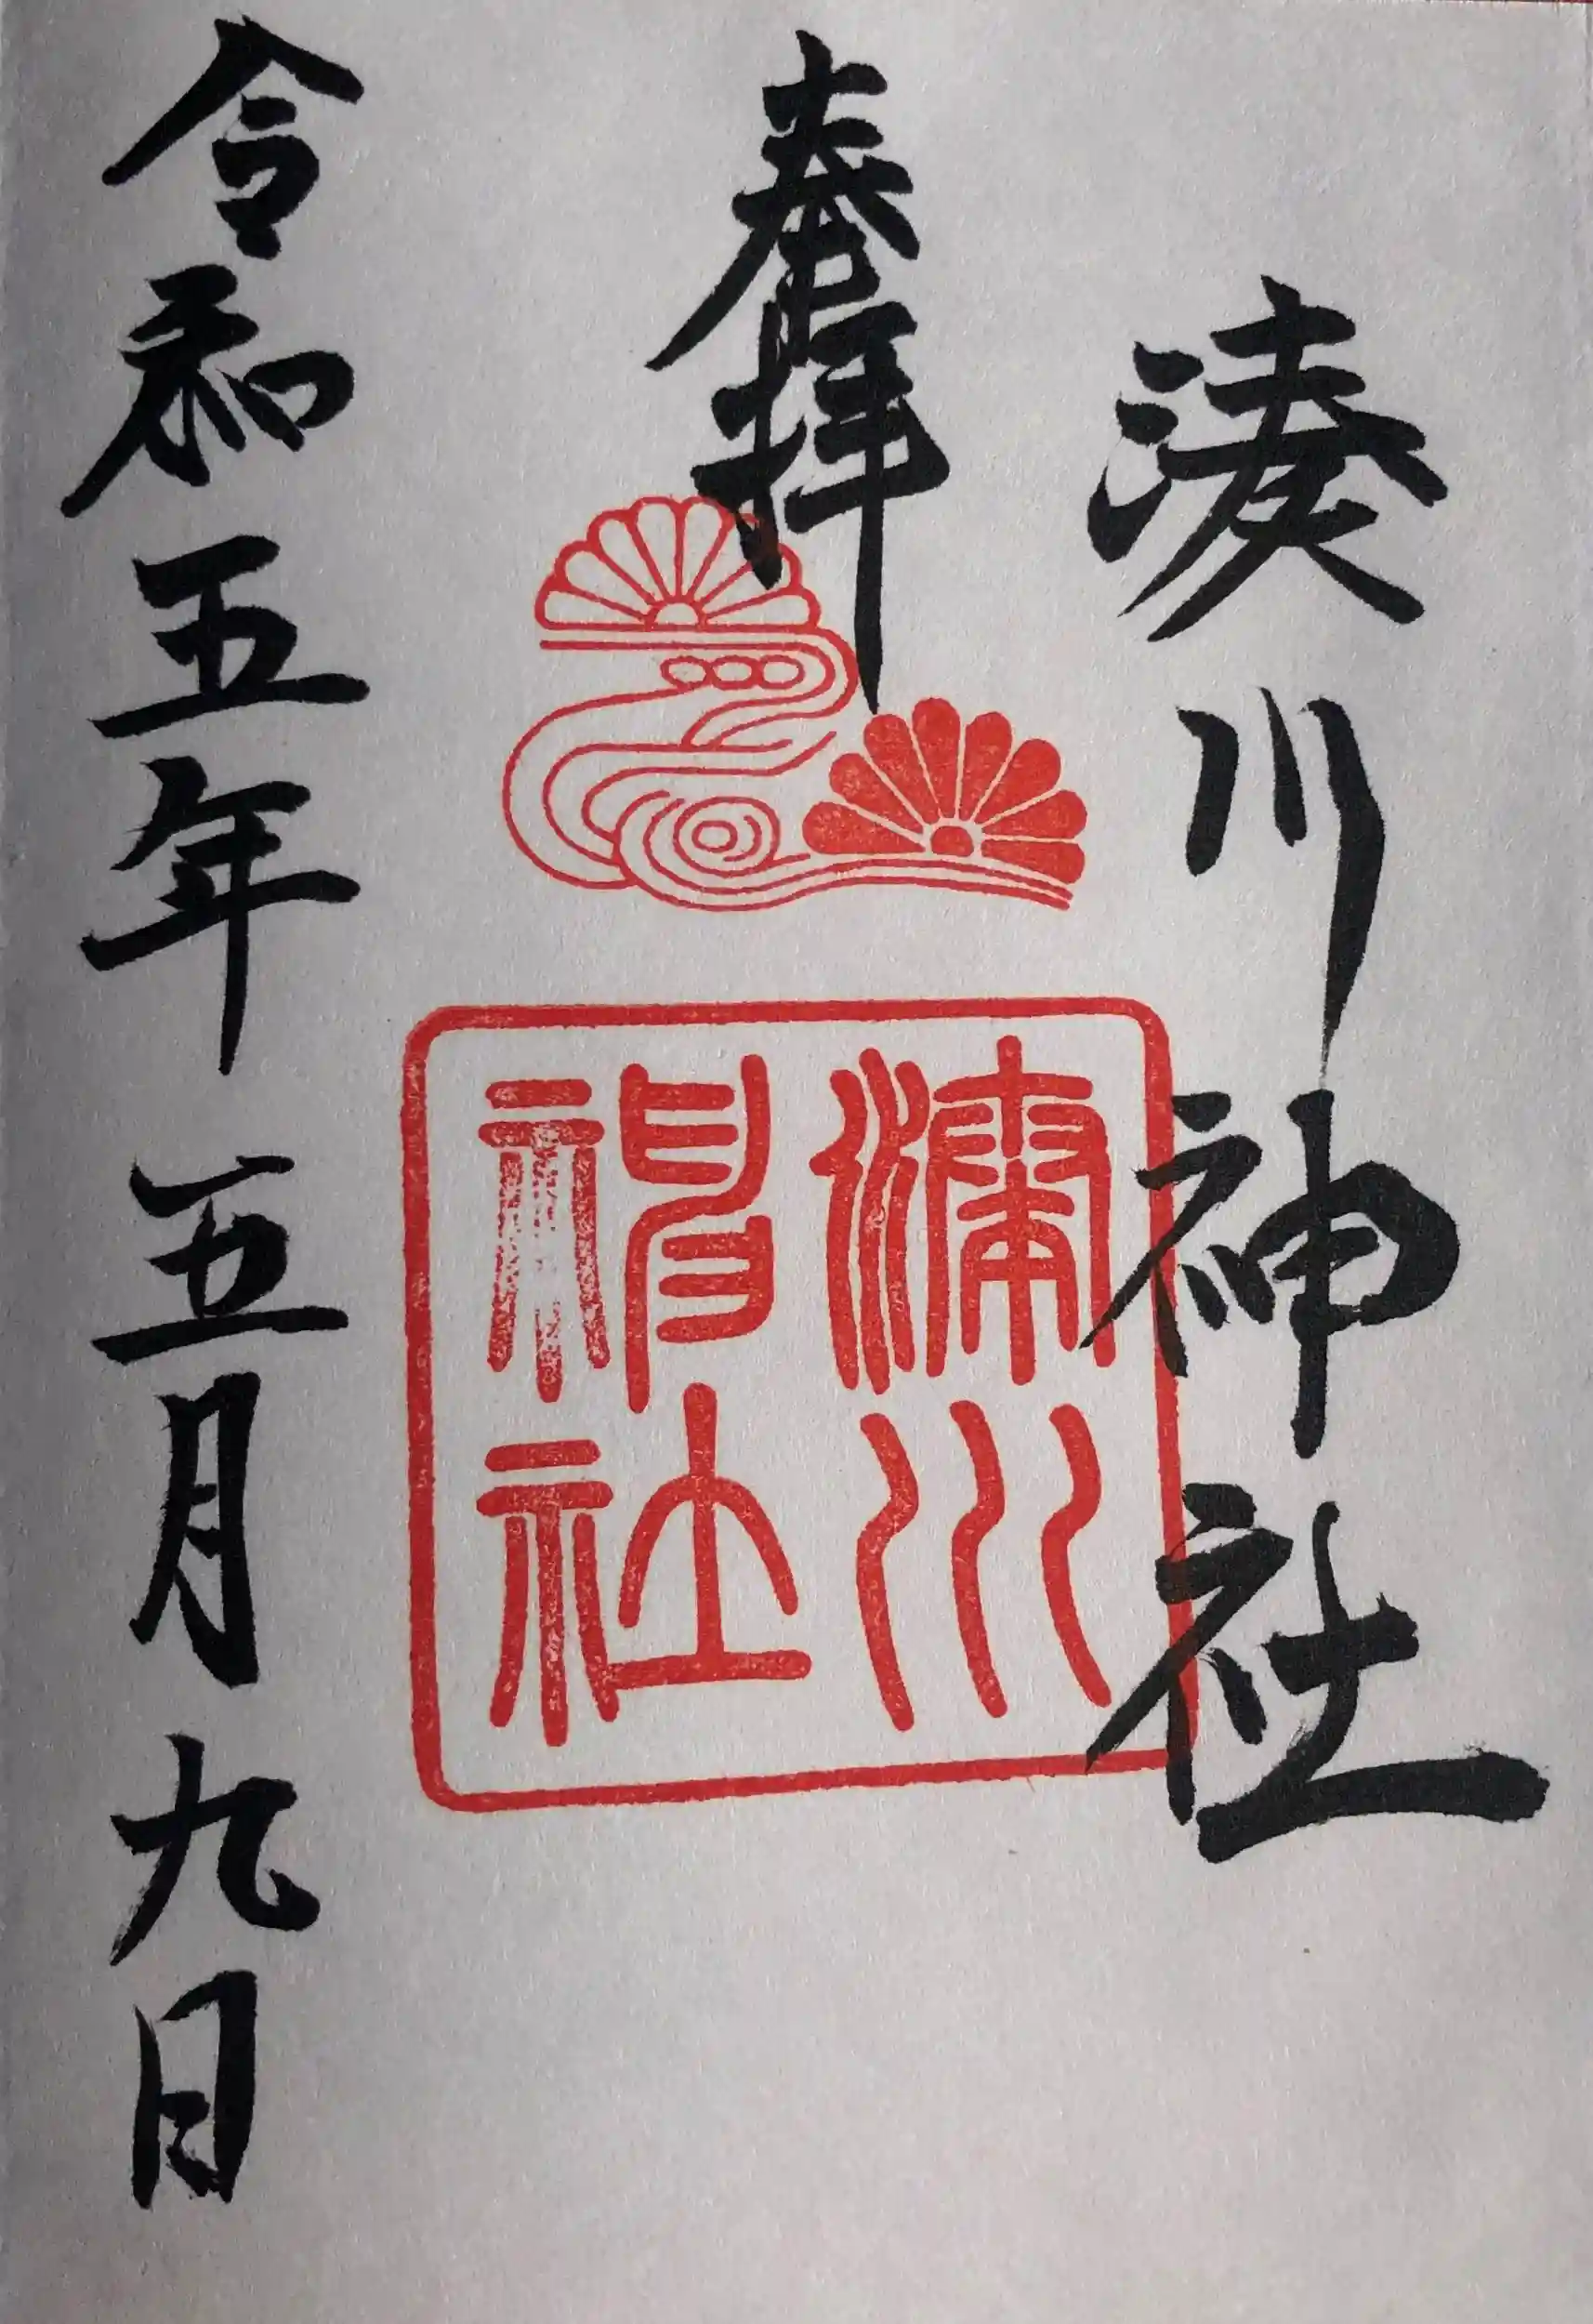 湊川神社
奉拝
湊川
神社
令和五年 五月九日